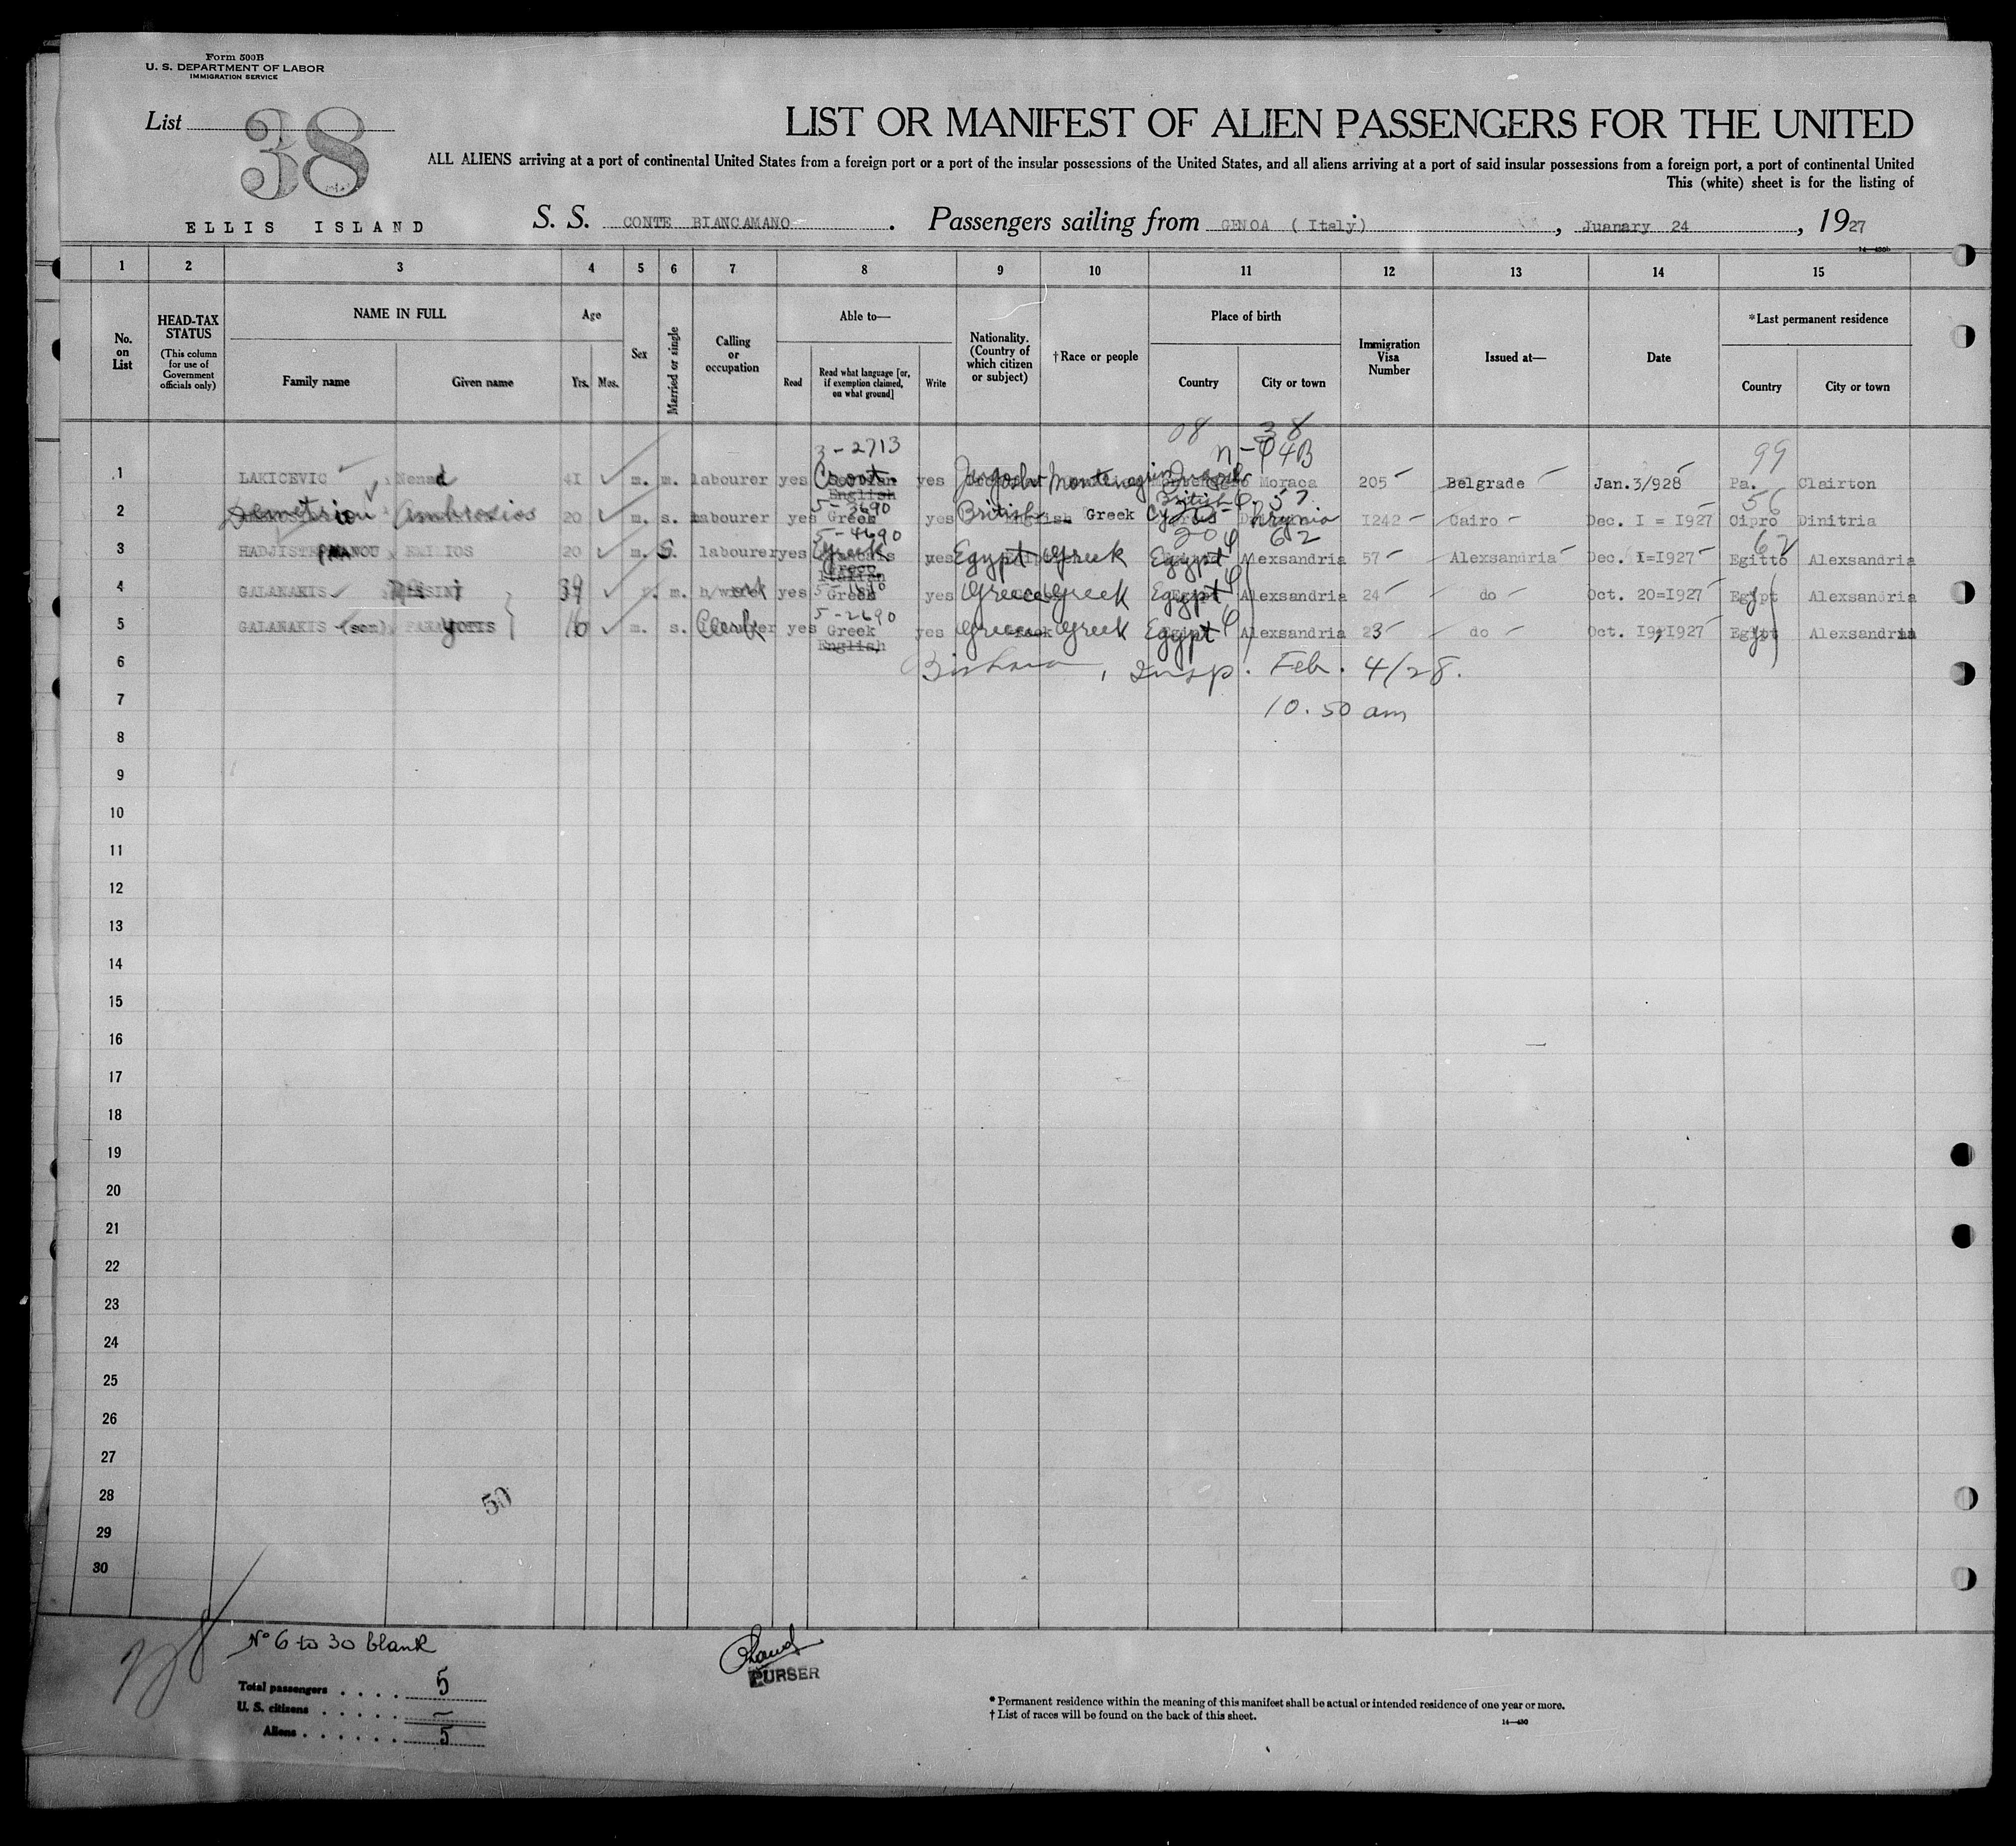 Form 500B
U. S. DEPARTMENT OF LABOR
IMMIGRATION SERVICE
List 38
LIST OR MANIFEST OF ALIEN PASSENGERS FOR THE UNITED
ALL ALIENS arriving at a port of continental United States from a foreign port or a port of the insular possessions of the United States, and all aliens arriving at a port of said insular possessions from a foreign port, a port of continental United
This (white) sheet is for the listing of
ELLIS ISLAND S. S. CONTE BIANCAMANO . Passengers sailing from GENOA ( Italy) , Juanary 24 , 1927
14—430b
1 2 3 4 5 6 7 8 9 10 11 12 13 14 15
No. on List
HEAD-TAX STATUS (This column for use of Government officials only)
NAME IN FULL
Family name Given name
Age
Yrs. Mos.
Sex
Married or single
Calling or occupation
Able to—
Read Read what language [or, if exemption claimed, on what ground] Write
Nationality. (Country of which citizen or subject)
†Race or people
Place of birth
Country City or town
Immigration Visa Number
Issued at—
Date
*Last permanent residence
Country City or town
08 38
3-2713 n-94B 99
1 LAKICEVIC Nenad 41 m. m. labourer yes Croat. English yes Jugoslav Montenegrin Moraca 205 Belgrade Jan.3/928 Pa. Clairton
5-3690 British 57 56
2 Demetriou Ambrosios 20 m. s. labourer yes Greek yes British Greek Cyprus Kyrynia 1242 Cairo Dec. I = I927 Cipro Dinitria
5-4690 20 62 62
3 HADJISTEPHANOU EMILIOS 20 m. S. labourer yes Greek yes Egypt Greek Egypt Alexsandria 57 Alexsandria Dec. I=I927 Egitto Alexsandria
Italian
4 GALANAKIS 39 m. h work yes Greek yes Greece Greek Egypt Alexsandria 24 do Oct. 20=I927 Egypt Alexsandria
5-2690
5 GALANAKIS (son) PANAYOTIS 16 m. s. Clerk yes Greek English yes Greece Greek Egypt Alexsandria 23 do Oct. I9,I927 Egypt Alexsandria
6 , Insp. Feb. 4/28.
7 10.50 am
8
9
10
11
12
13
14
15
16
17
18
19
20
21
22
23
24
25
26
27
28 50
29
30
No 6 to 30 blank
Total passengers . . . . 5
U. S. citizens . . . . . –
Aliens . . . . . . 5
PURSER
* Permanent residence within the meaning of this manifest shall be actual or intended residence of one year or more.
† List of races will be found on the back of this sheet.
14—430